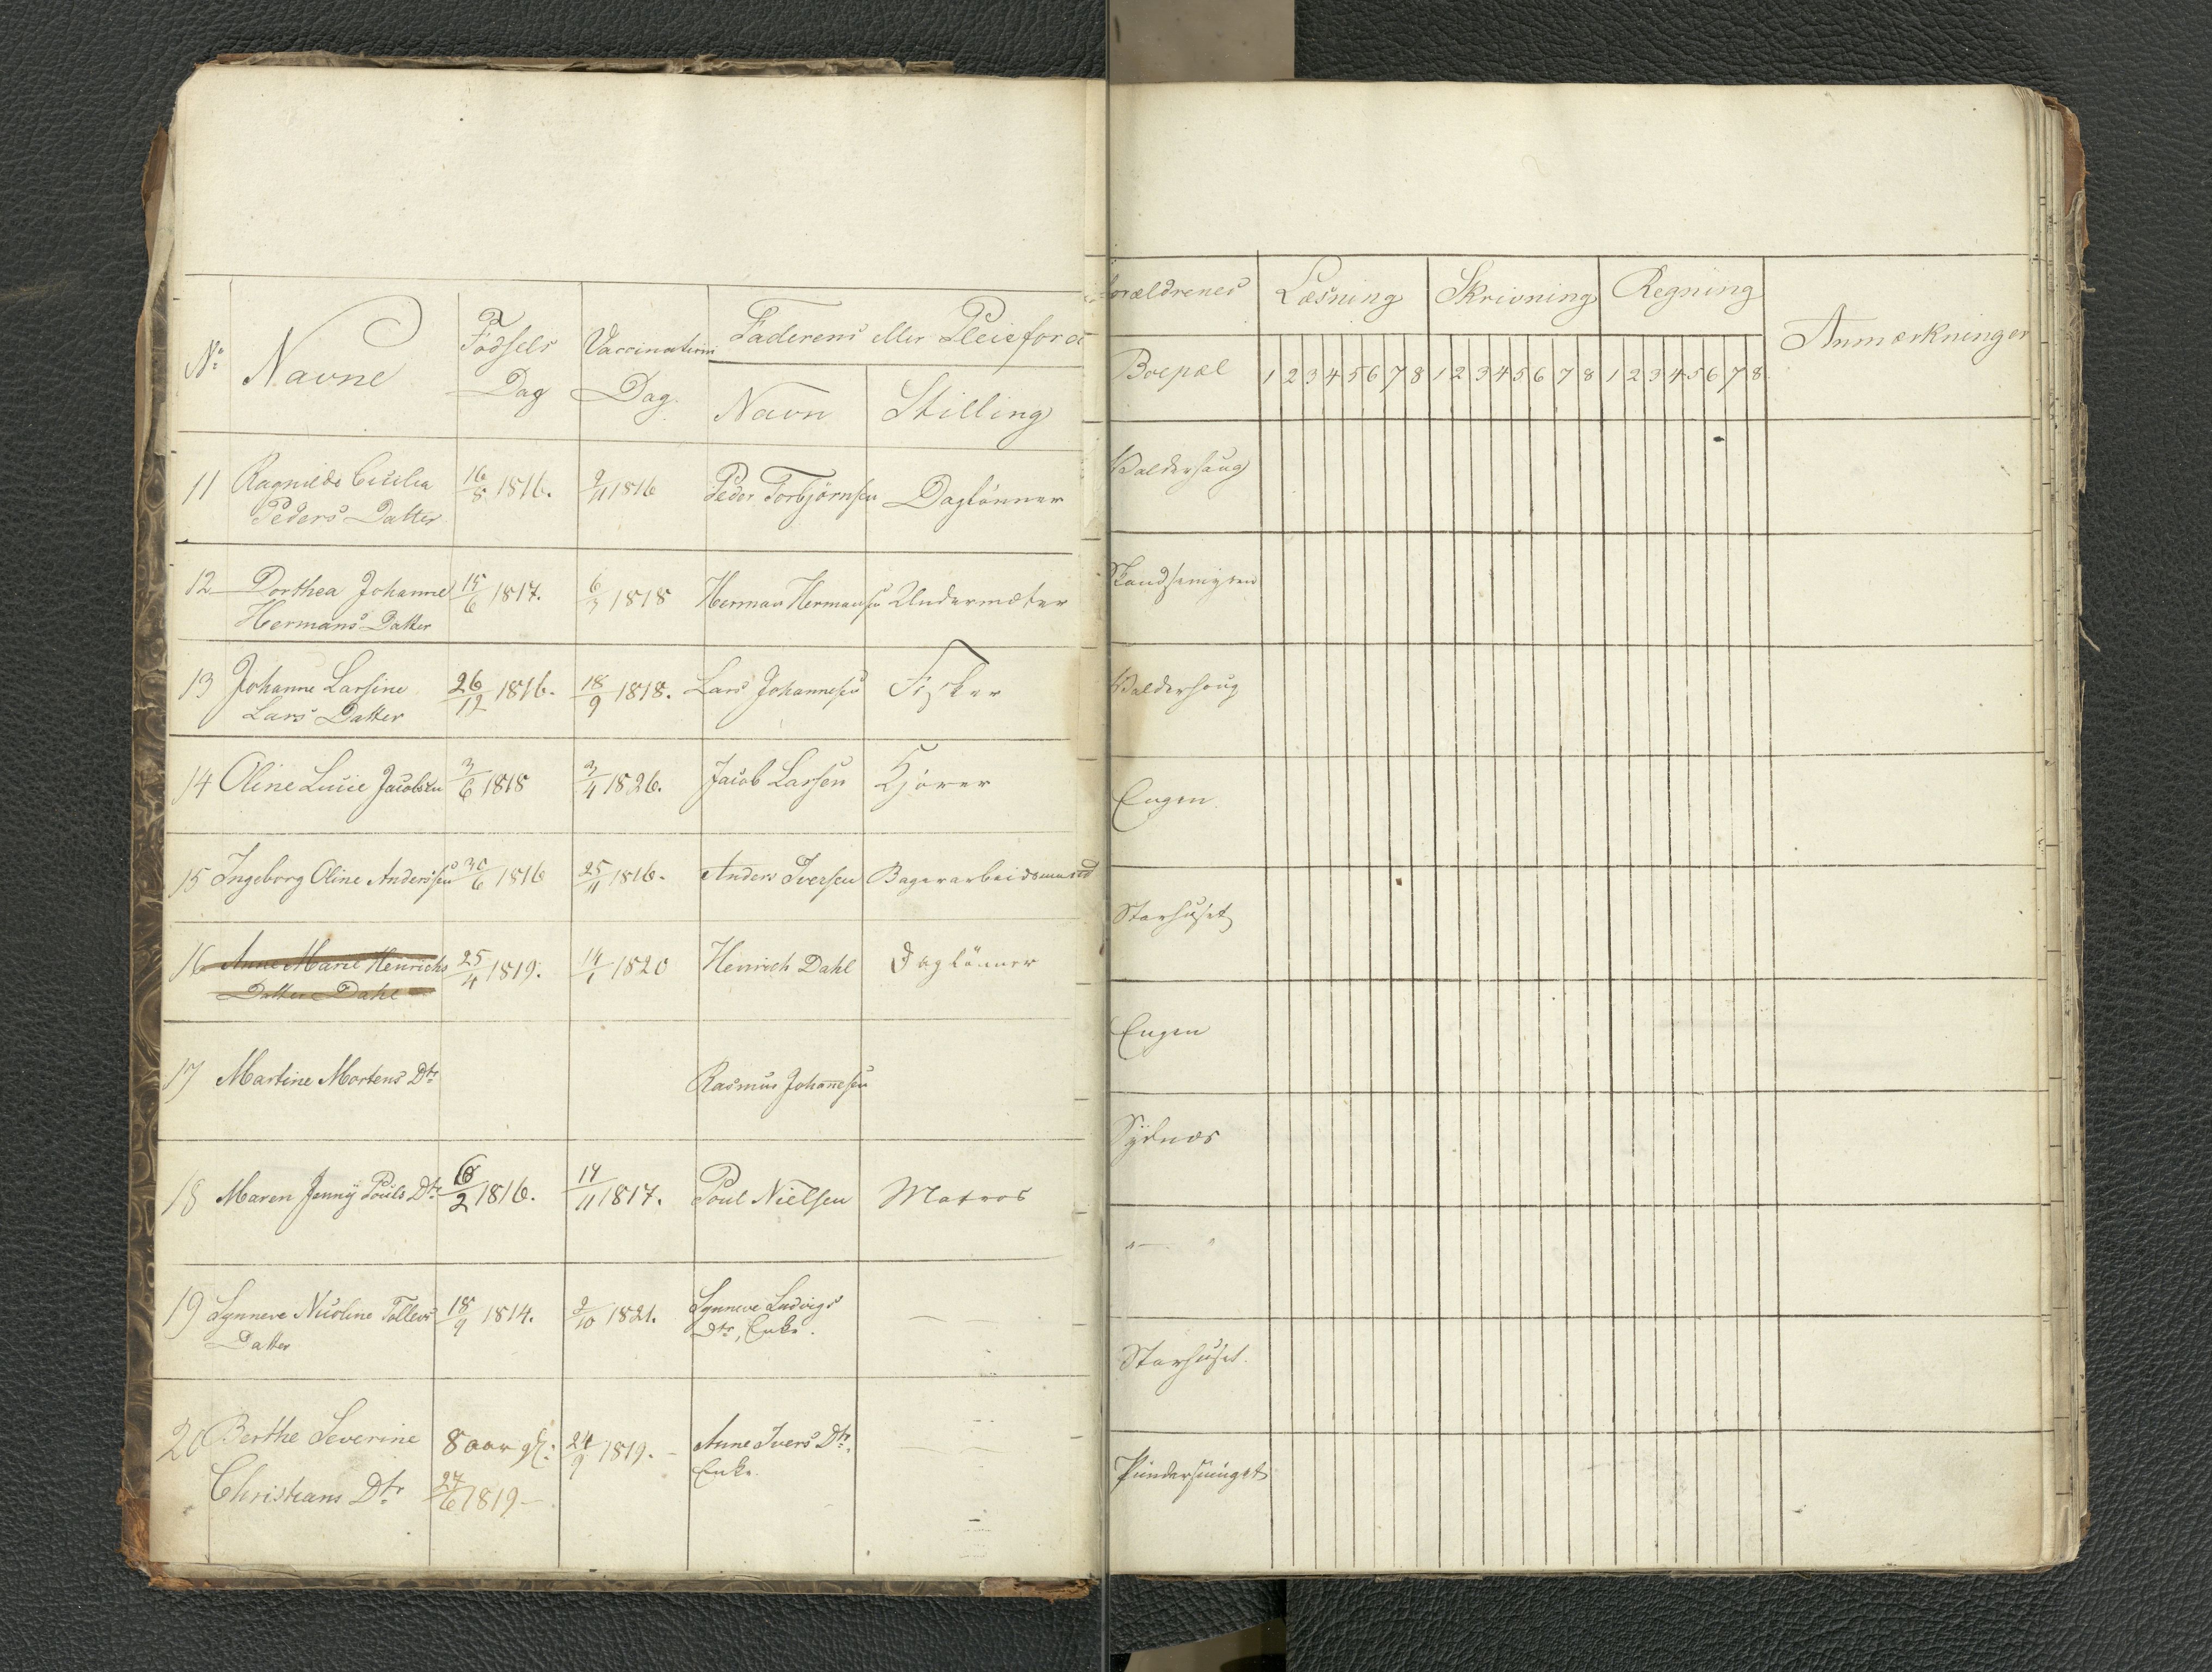 No Navne Fødsels Dag Vaccinations Dag. Faderens eller Pleieforældrenes Læsning Skrivning Regning Anmærkninger
Navn Stilling Boepæl 1 2 3 4 5 6 7 8 1 2 3 4 5 6 7 8 1 2 3 4 5 6 7 8
11 Ragnilde Cicilia 16/8 1816. 9/11 1816 Peder Torbjørnsen Daglønner Waldershaug
Peders Datter
12 Dorthea Johanne 15/6 1817. 1818 Herman Hermansen Undermæter
Hermans Datter
13 Johanne Larsine 26/12 1816. 18/9 1818. Lars Johannesen Fisker Waldershoug
Lars Datter
14 Oline Lucie Jacobsen 3/6 1818 3/4 1826. Jacob Larsen Kjører Engen
15 Ingeborg Oline Andersen 30/6 1816 25/11 1816. Anders Iversen Bagerarbeidsmand Starhuset
16 Anne Marie Henrichs 25/4 1819. 14/1 1820 Henrich Dahl Daglønner Engen
Datter Dahl
17 Martine Mortens Dtr Rasmus Johannesen Sydnæs
18 Maren Jenny Pouls Dtr 2 1816. 14/11 1817. Poul Nielsen Matros — "
19 Synneve Nicoline Tollevs 18/9 1814. 2/10 1821. Synneve Ludvigs — Starhuset.
Datter Dtr, Enke.
20 Berthe Severine 8 aar gl. 24/9 1819. - Anne Ivers Dtr.
Christians Dtr 27/6 1819 — Enke.